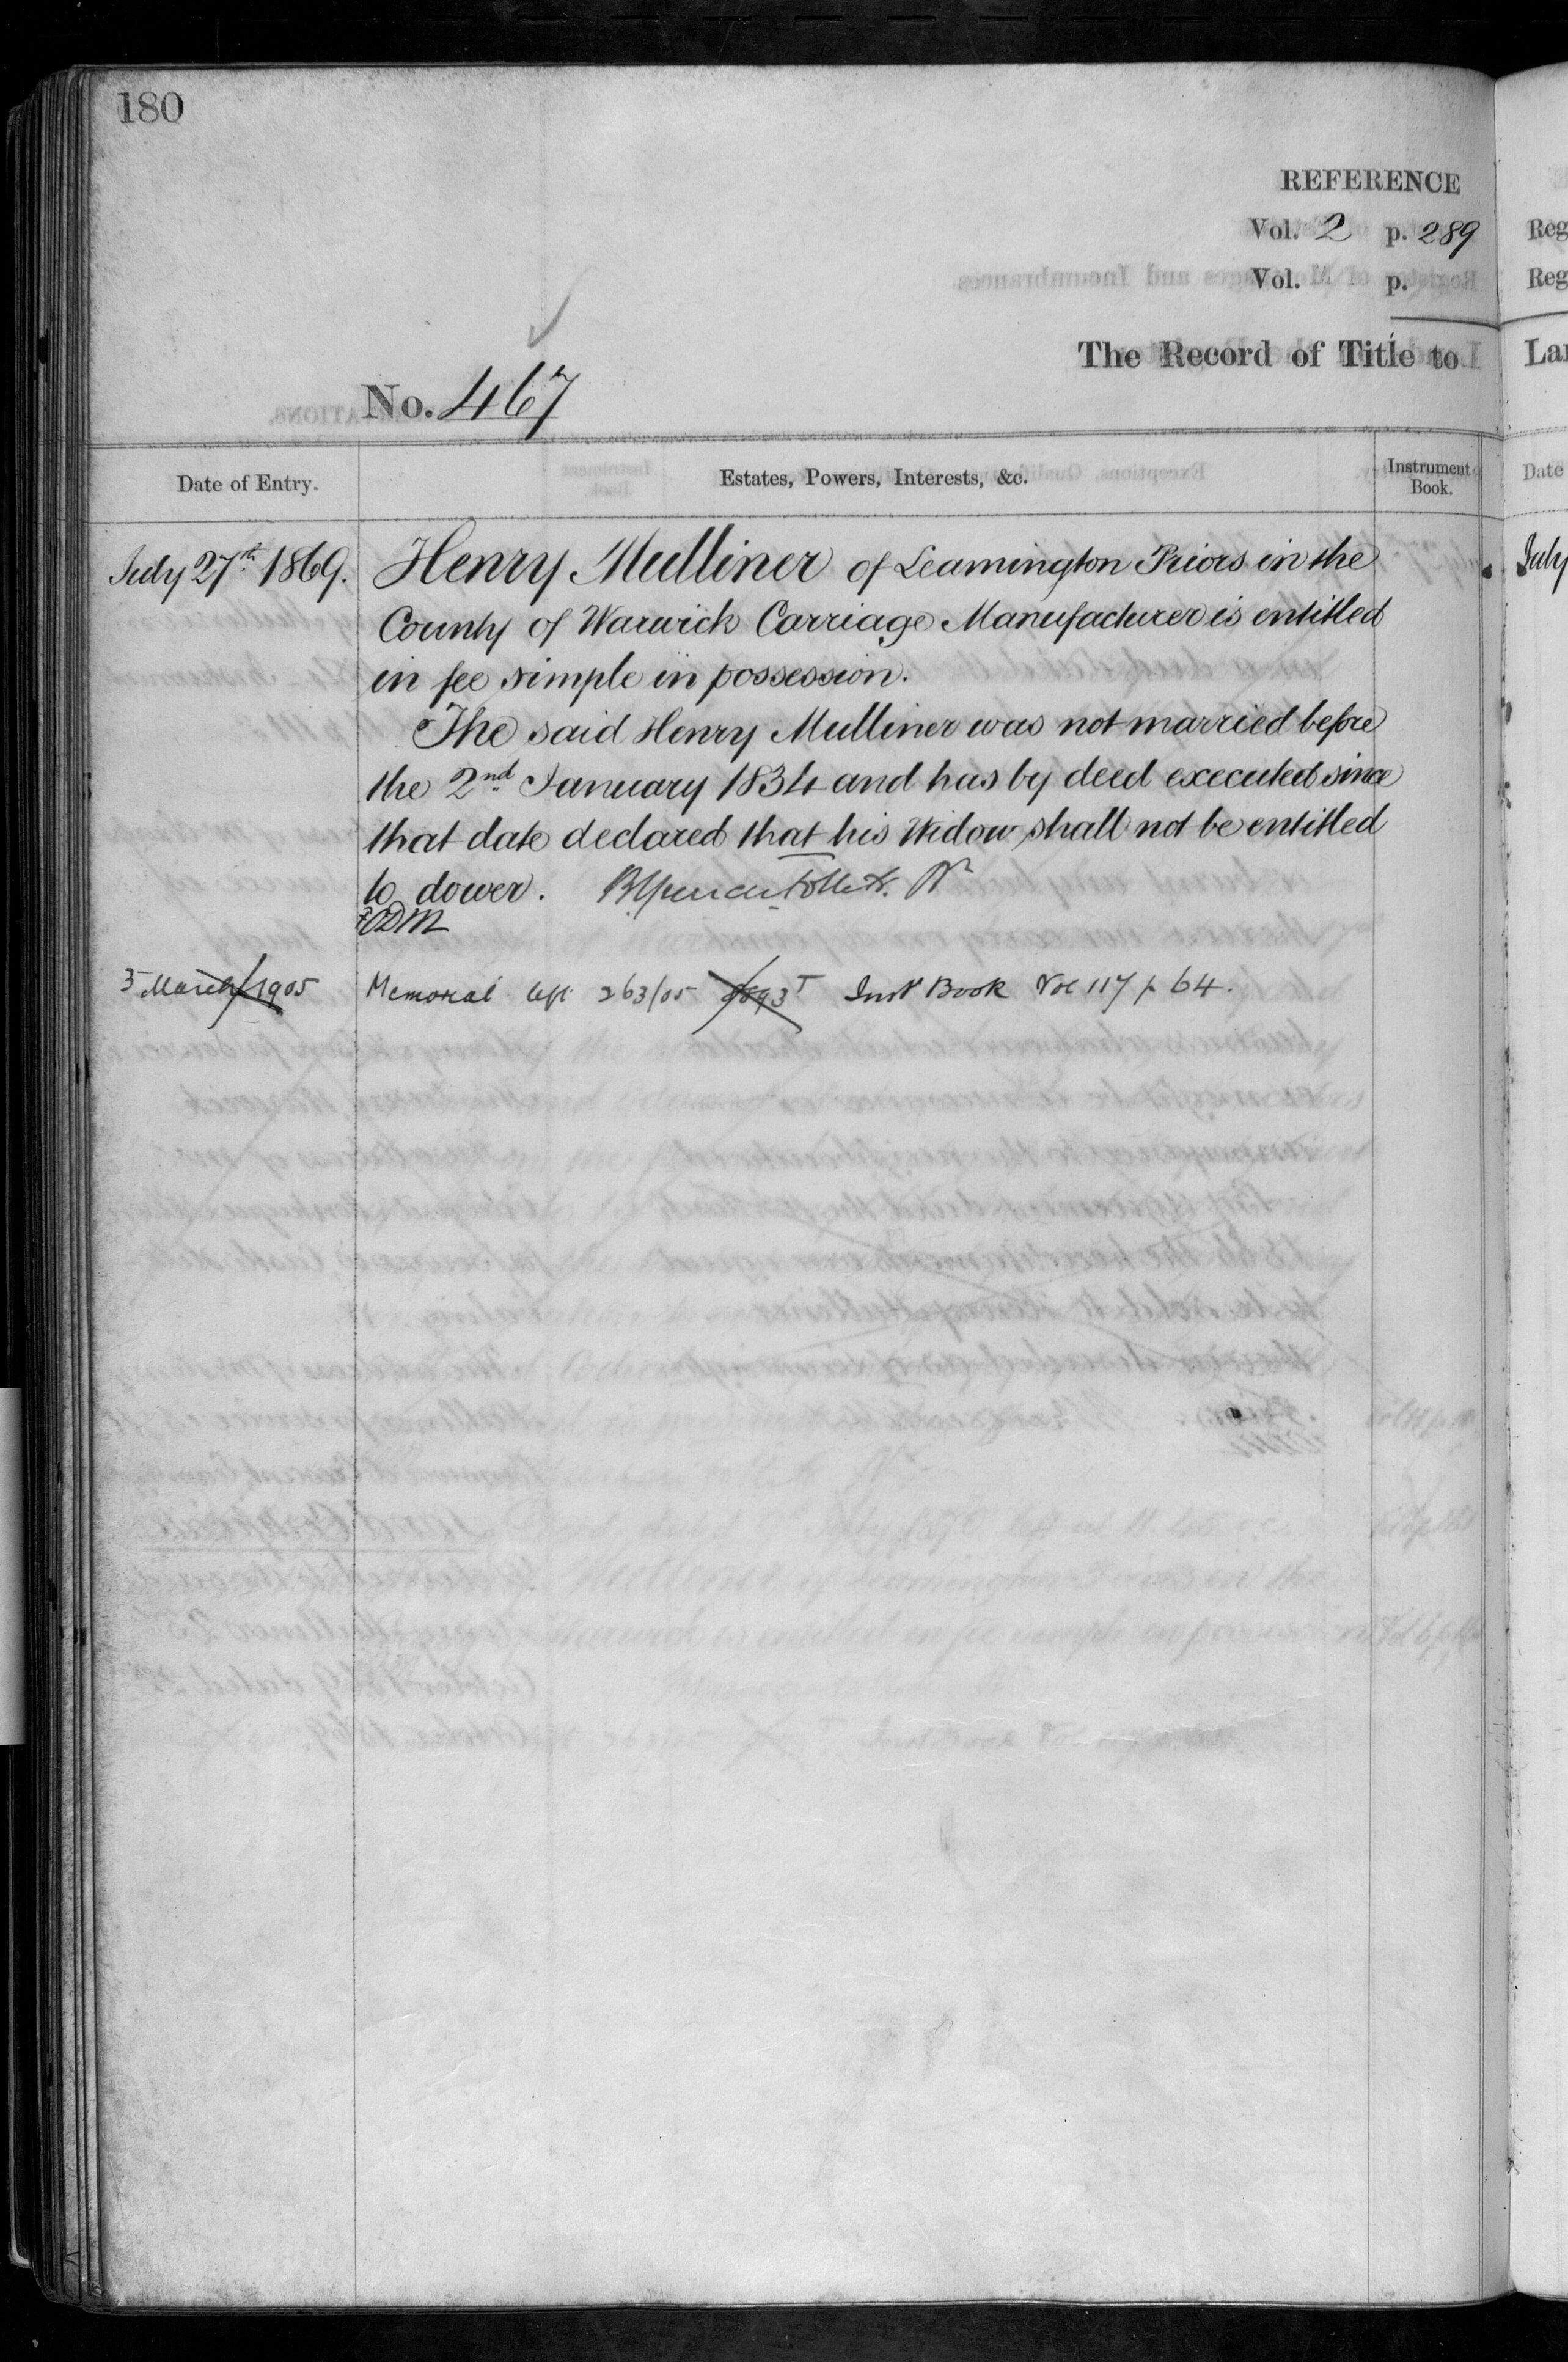 180
REFERENCE
Vol. 2 p. 289
Vol. p.
The Record of Title to
No. 467
Date of Entry.
Estates, Powers, Interests, &c.
Instrument Book.
July 27th 1869.
Henry Mulliner of Leamington Priors in the
County of Warwick Carriage Manufacturer is entitled
in fee simple in possession.
The said Henry Mulliner was not married before
the 2nd January 1834 and has by deed executed since
that date declared that his Widow shall not be entitled
to dower.
3 March 1905
Memorial left 263/05 Inst Book Vol 117 p 64.
Reg
Reg
Lan
Date
July